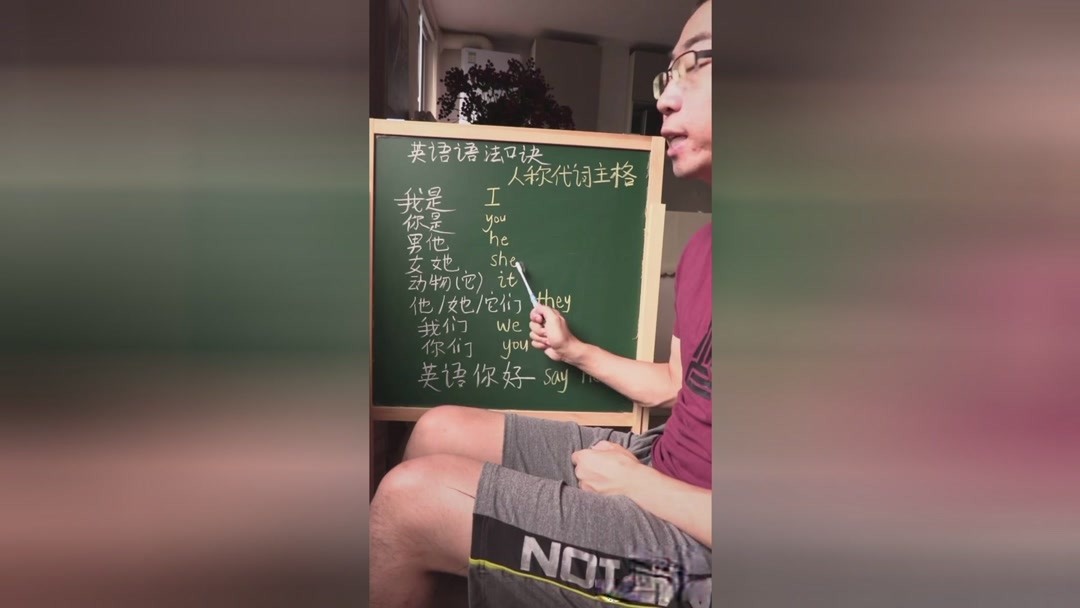 英语语法口诀
人称代词主格
我是 I
你是 you
男他 he
女她 she
动物(它) it
他/她/它们 they
我们 we
你们 you
英语你好 say
NOT